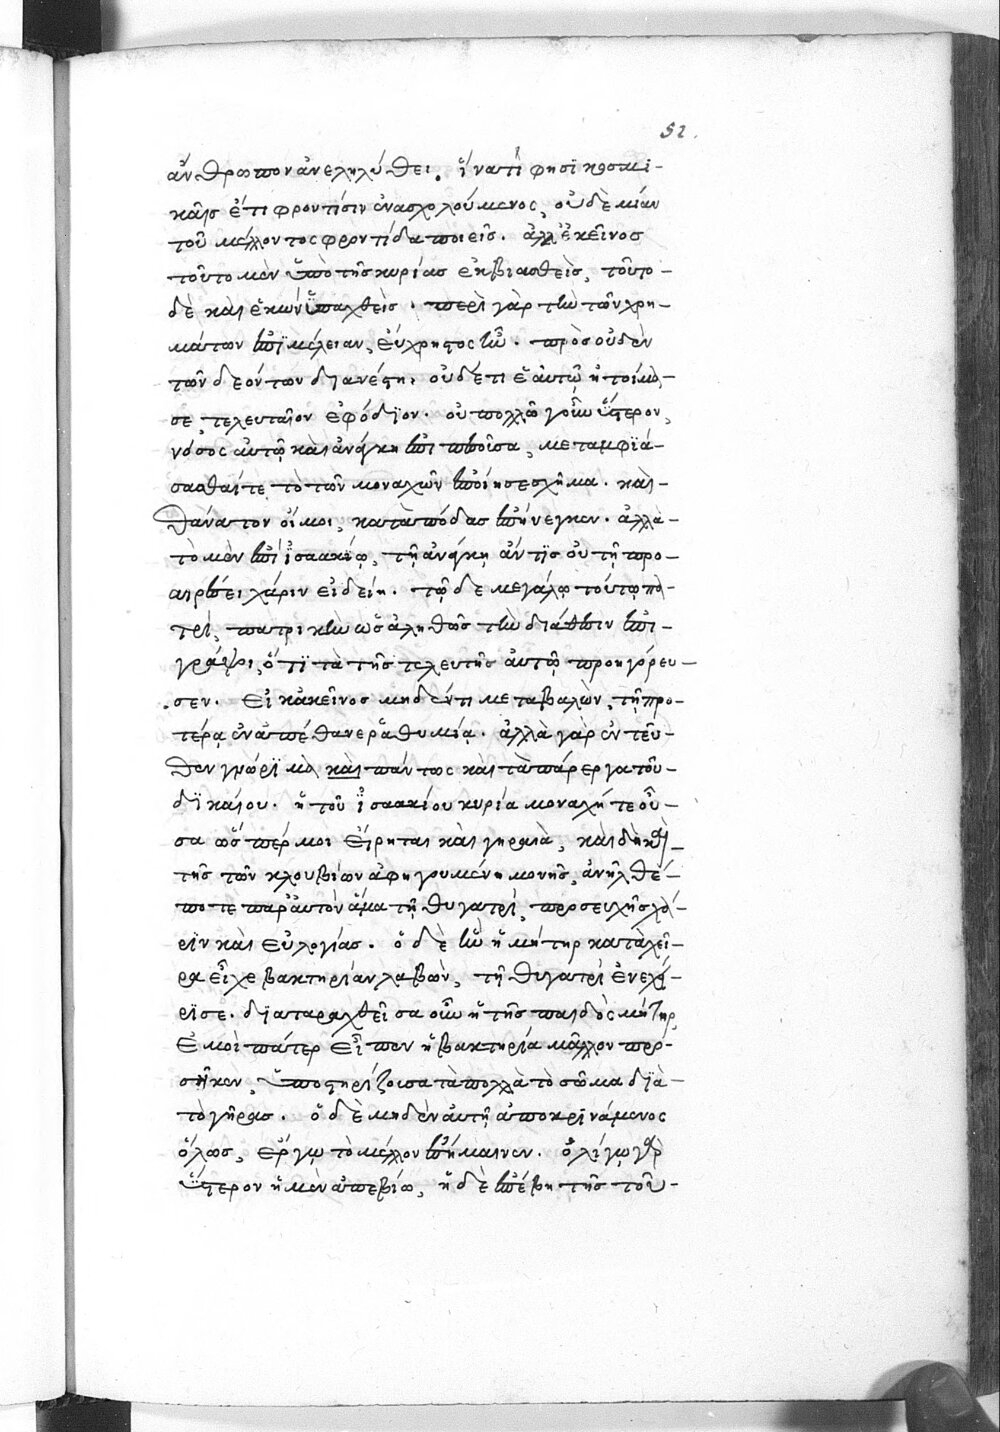 52.
ἄνθρωπον ἀνεληλύθει. ἵνατί φησϊ κοσμι-
καῖς ἔτι φροντίσιν ἐνασχολούμενος, οὐδεμίαν
τοῦ μέλλοντος φροντίδα ποιεῖς. ἀλλ' ἐκεῖνος
τοῦτο μὲν ὑπὸ τῆς κυρίας ἐκβιασθεὶς, τοῦτο-
δὲ καὶ ἑκὼν ὑπαχθεὶς. περὶ γὰρ τὴν τῶν χρη-
μάτων ἐπϊμέλειαν, εὔχρηστος ἦν. πρὸς οὐδὲν
τῶν δεόντων διανέστη. οὐδέ τι ἑαυτῷ ἡτοίμα-
σε, τελευταῖον ἐφόδϊον. οὐ πολλῷ γοῦν ὕστερον,
νόσος αὐτῷ καὶ ἀνάγκη ἐπιπεσοῦσα, μεταμφϊά-
σασθαί τε τὸ τῶν μοναχῶν ἐποίησε σχῆμα. καὶ-
θάνατον οἴμοι, κατὰ πόδας ἐπήνεγκεν. ἀλλὰ-
τὸ μὲν ἐπὶ ἰσαακίῳ, τῇ ἀνάγκῃ ἄν τις οὐ τῇ προ-
αιρέσει χάριν εἰδείη. τῷ δὲ μεγάλῳ τούτῳ πα-
τρὶ, πατρικὴν ὡς ἀληθῶς τὴν διάθεσιν ἐπι-
γράψει, ὅτϊ τὰ τῆς τελευτῆς αὐτῷ προηγόρευ-
σεν. Εἰ κἀκεῖνος μηδέν τι μεταβαλὼν, τῇ προ-
τέρᾳ ἐναπέθανε ῥαθυμίᾳ. ἀλλὰ γὰρ ἐντεῦ-
θεν γνώρϊμα καὶ πάντως καὶ τὰ πάρεργα τοῦ-
δϊκαίου. ἡ τοῦ ἰσαακίου κυρία μοναχή τε οὖ-
σα ὥσπέρ μοι εἴρηται καὶ γηραιὰ, καὶ δὴ καὶ-
τῆς τῶν κλουβίων ἀφηγουμένη μονῆς, ἀνῆλθέ-
ποτε παρ' αὐτὸν ἅμα τῇ θυγατρὶ, προσευχῆς χά-
ρϊν καὶ εὐλογίας. ὁ δὲ ἣν ἡ μήτηρ κατὰ χεῖ-
ρα εἶχε βακτηρίαν λαβὼν, τῇ θυγατρὶ ἐνεχεί-
ρϊσε. δϊαταραχθεῖσα οὖν ἡ τῆς παιδὸς μήτηρ,
Ἐμοὶ πάτερ εἶπεν ἡ βακτηρία μᾶλλον προ-
σῆκεν, ὑποστηρίζουσα τὰ πολλὰ τὸ σῶμα δϊὰ-
τὸ γῆρας. ὁ δὲ μηδὲν αὐτῇ ἀποκρινάμενος
ὅλως, ἔργῳ τὸ μέλλον ἐπέσήμαινεν. ὀλίγῳ γὰρ
ὕστερον ἡ μὲν ἀπεβίω, ἡ δὲ ἐπέβη τῆς τοῦ-